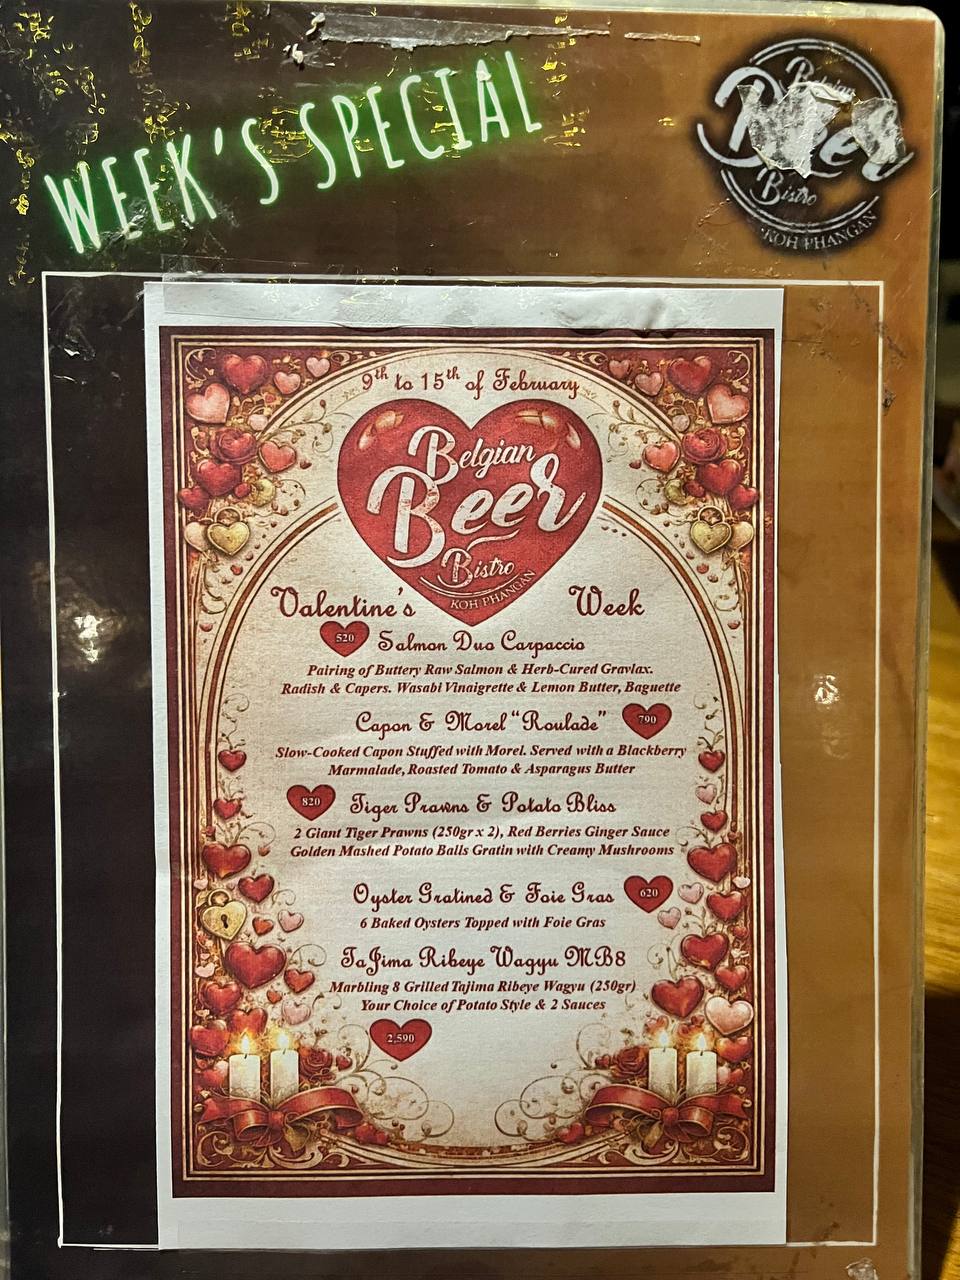 WEEK'S SPECIAL
Belgian
Beer
Bistro
KOH PHANGAN
9th to 15th of February
Belgian
Beer
Bistro
KOH PHANGAN
Valentine's Week
520 Salmon Duo Carpaccio
Pairing of Buttery Raw Salmon & Herb-Cured Gravlax.
Radish & Capers. Wasabi Vinaigrette & Lemon Butter, Baguette
Capon & Morel "Roulade" 790
Slow-Cooked Capon Stuffed with Morel. Served with a Blackberry
Marmalade, Roasted Tomato & Asparagus Butter
820 Tiger Prawns & Potato Bliss
2 Giant Tiger Prawns (250gr x 2), Red Berries Ginger Sauce
Golden Mashed Potato Balls Gratin with Creamy Mushrooms
Oyster Gratined & Foie Gras 620
6 Baked Oysters Topped with Foie Gras
TaJima Ribeye Wagyu MB8
Marbling 8 Grilled Tajima Ribeye Wagyu (250gr)
Your Choice of Potato Style & 2 Sauces
2,590